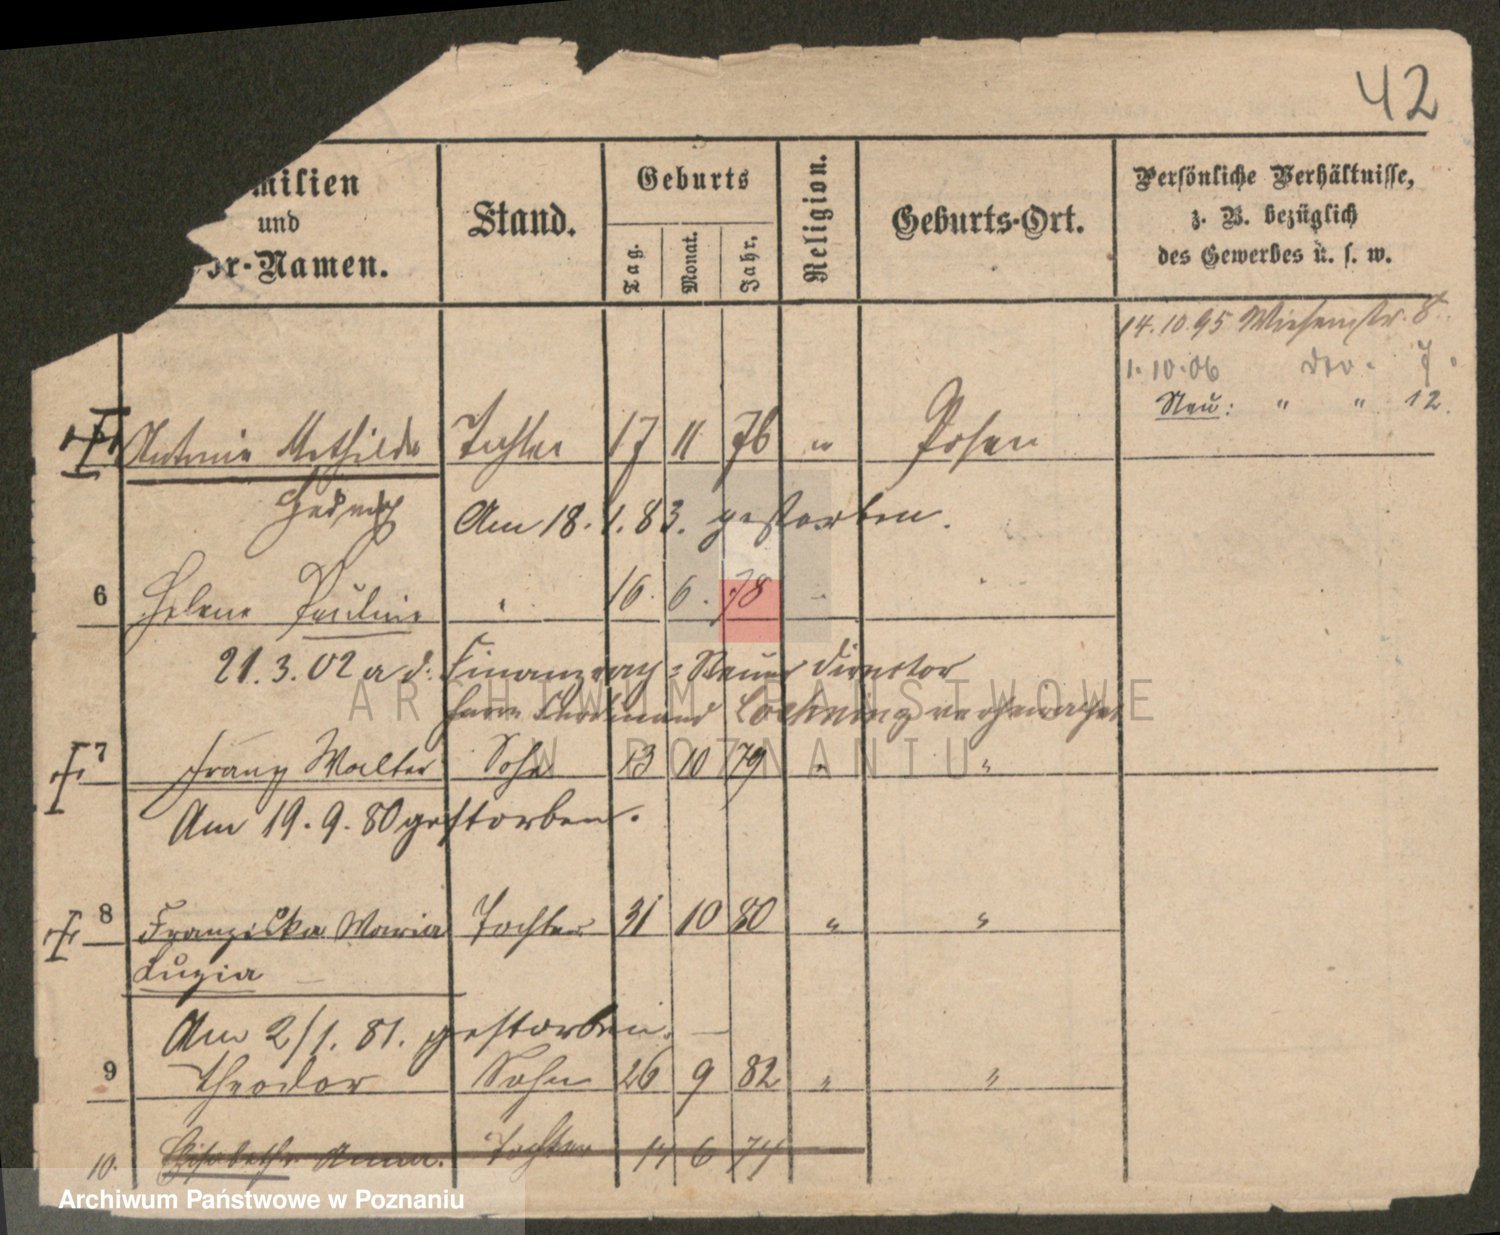 42
milien
und
or-Namen.
Stand.
Geburts
Tag.
Monat.
Jahr.
Religion.
Geburts-Ort.
Persönliche Verhältnisse,
z. B. bezüglich
des Gewerbes u. s. w.
14.10.95 Wiesenstr. 8.
1.10.06 dto. 7.
Neu: " " 12.
Antonie Mathilde Tochter 17 11 76 " Posen
Hedwig
Am 18.1.83. gestorben.
6 Helene Pauline " 16. 6. 78 "
21.3.02 a. d. Finanzrath = Steuer Director
Herrn Ferdinand verheirathet
7 Franz Walter Sohn 13 10 79 " "
Am 19.9.80 gestorben.
8 Franziska Maria Tochter 31 10 80 " "
Luzia
Am 2/1.81. gestorben. —
9 Theodor Sohn 26 9 82 " "
10. Elisabeth Anna. Tochter 14 6 74
ARCHIWUM PAŃSTWOWE
W POZNANIU
Archiwum Państwowe w Poznaniu